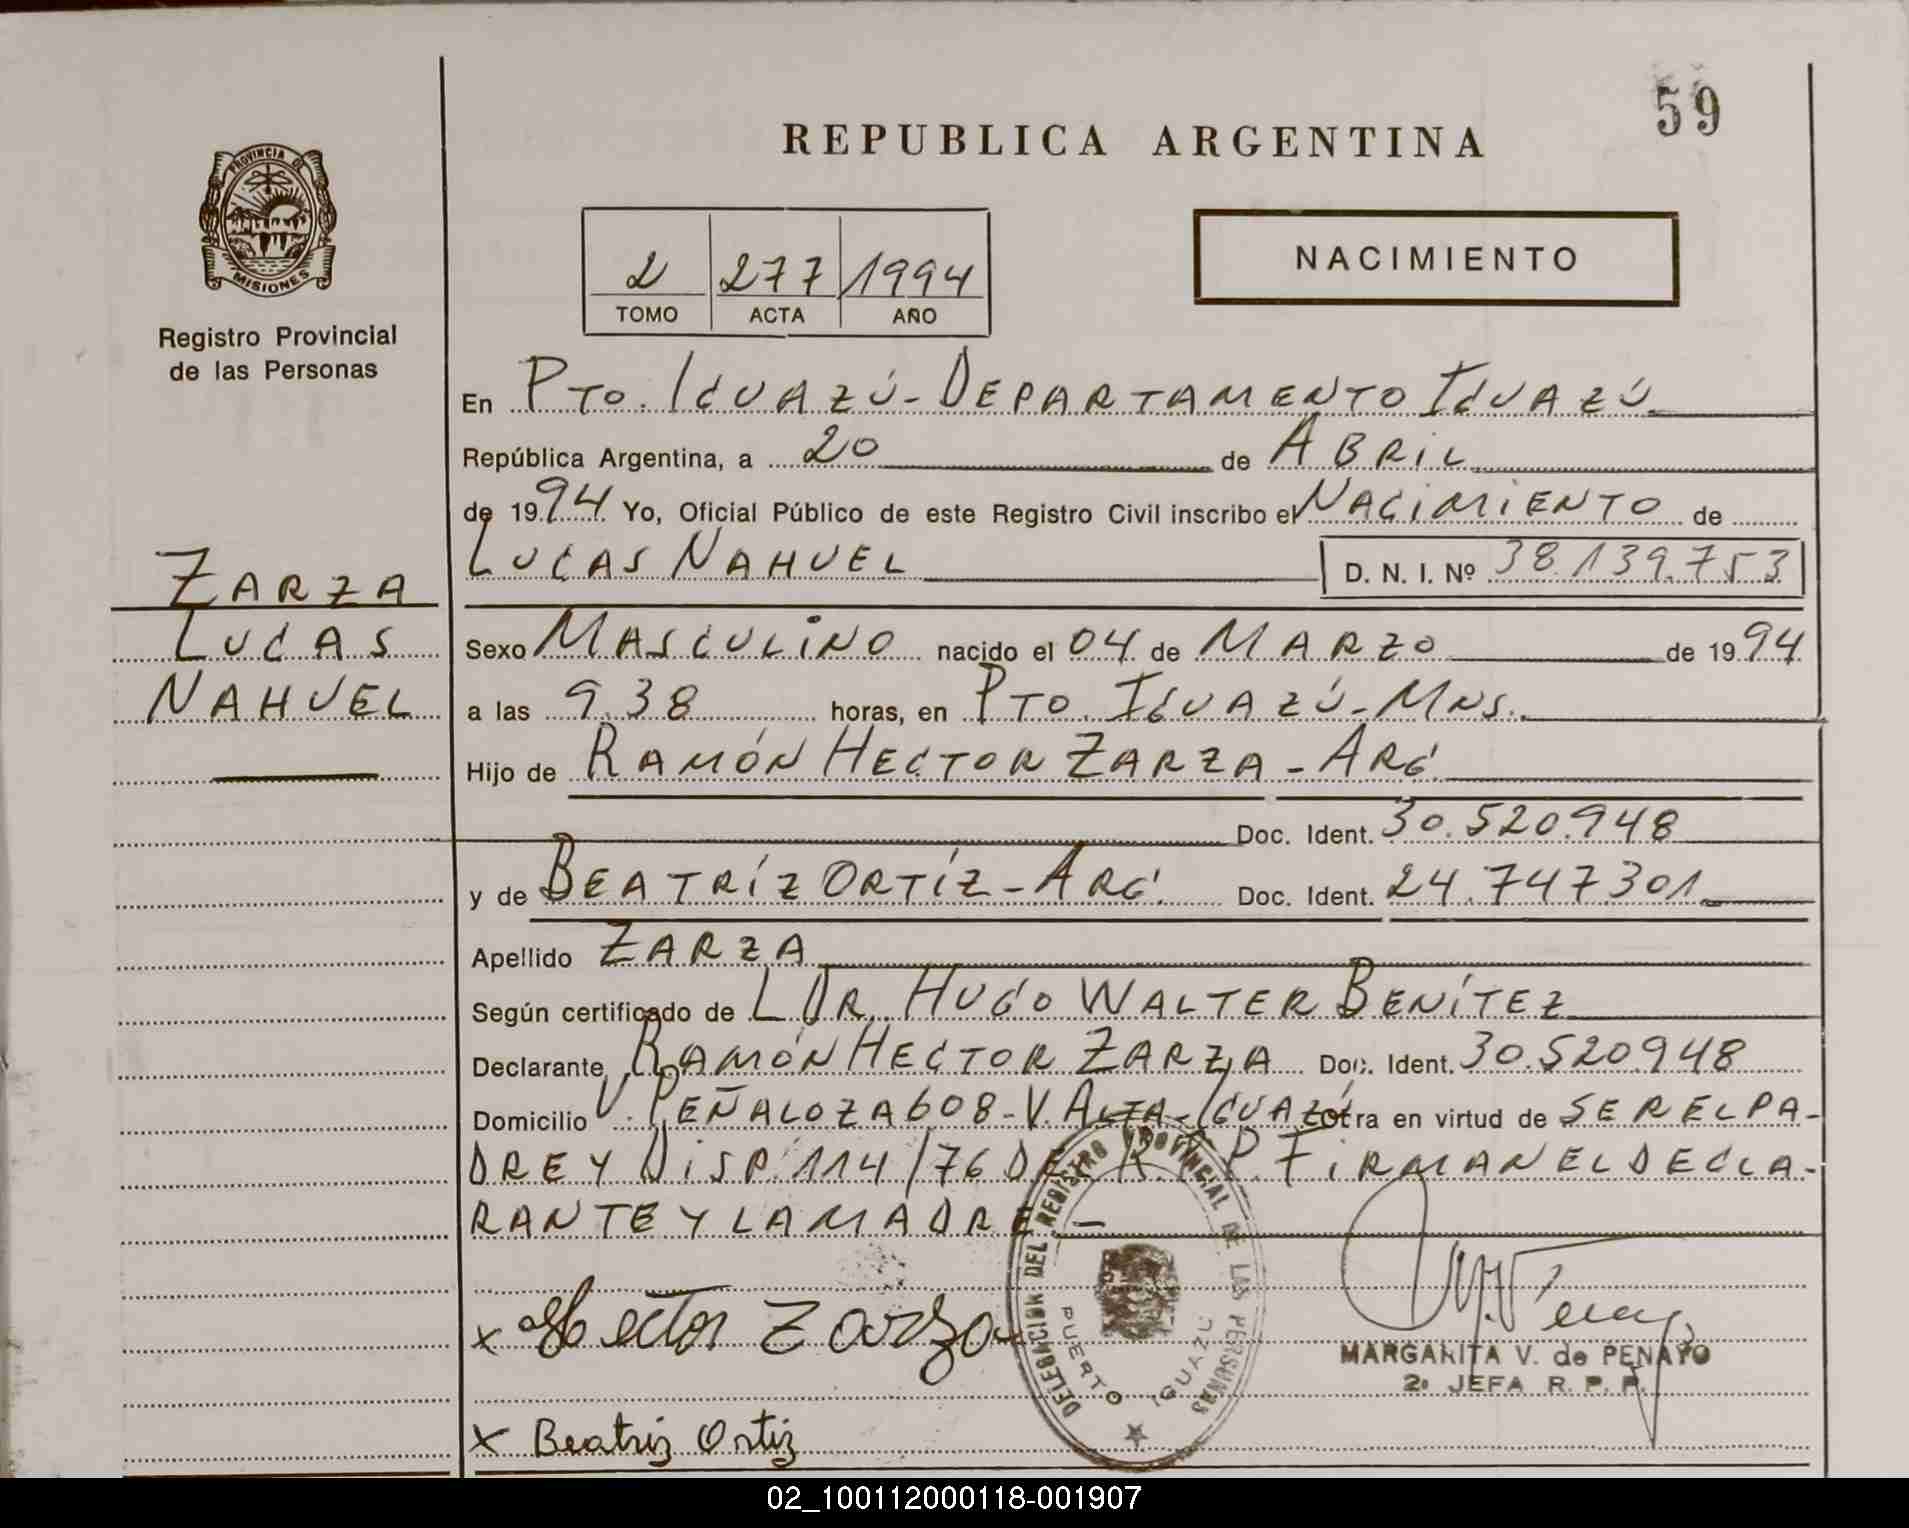 59
REPUBLICA ARGENTINA
PROVINCIA DE
MISIONES
Registro Provincial
de las Personas
2 277 1994
TOMO ACTA AÑO
NACIMIENTO
En PTO. IGUAZÚ - DEPARTAMENTO IGUAZÚ
República Argentina, a 20 de ABRIL
de 1994 Yo, Oficial Público de este Registro Civil inscribo el NACIMIENTO de
LUCAS NAHUEL D. N. I. Nº 38.139.753
ZARZA
LUCAS
NAHUEL
Sexo MASCULINO nacido el 04 de MARZO de 1994
a las 9.38 horas, en PTO. IGUAZÚ - MNS.
Hijo de RAMÓN HECTOR ZARZA - ARG.
Doc. Ident. 30.520.948
y de BEATRÍZ ORTÍZ - ARG. Doc. Ident. 24.747.301
Apellido ZARZA
Según certificado de L DR. HUGO WALTER BENÍTEZ
Declarante RAMÓN HECTOR ZARZA Doc. Ident. 30.520.948
Domicilio V. PEÑALOZA 608 - V. ALTA - IGUAZÚ otra en virtud de SER EL PA-
DRE Y DISP. 114/76 DE R.P.P. FIRMAN EL DECLA-
RANTE Y LA MADRE -
DELEGACION DEL REGISTRO PROVINCIAL DE LAS PERSONAS
PUERTO IGUAZU
x Hector Zarza
MARGARITA V. de PENAYO
2º JEFA R. P. P.
x Beatriz Ortiz
02_100112000118-001907